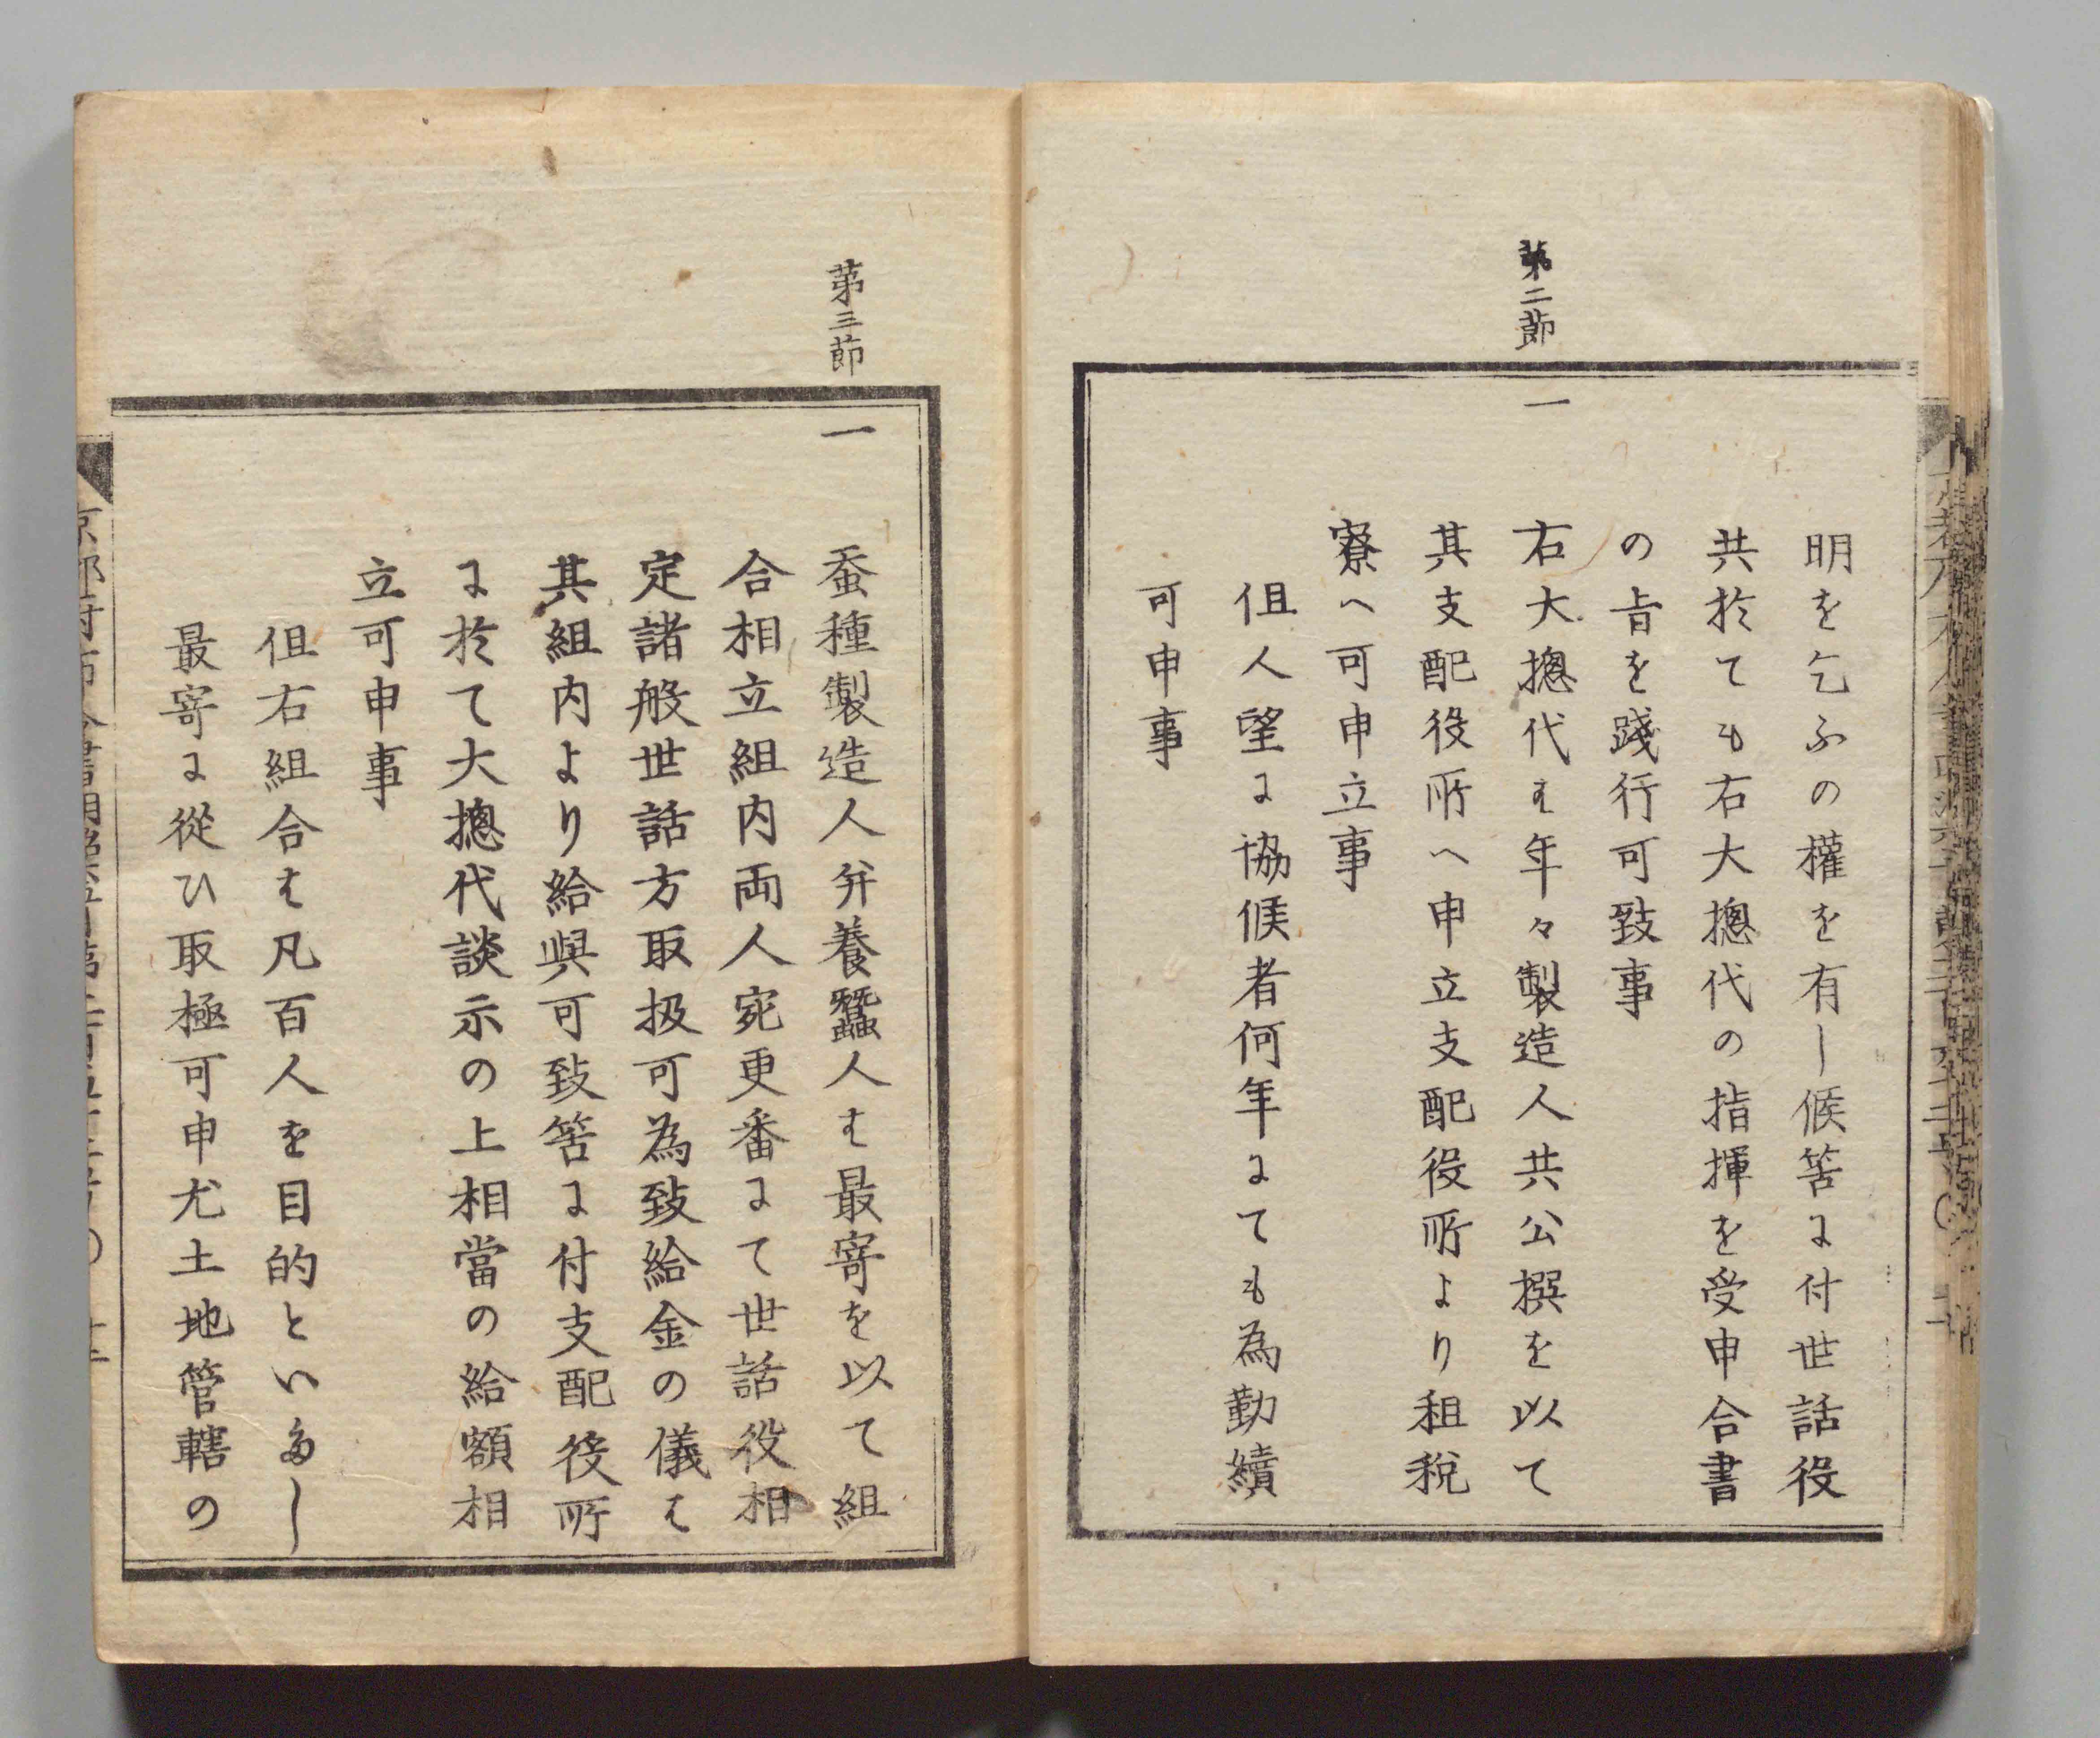 明を乞ふの權を有し候筈に付世話役
共於ても右大摠代の指揮を受申合書
の旨を踐行可致事
第二節
一
右大摠代は年々製造人共公撰を以て
其支配役所へ申立支配役所より租税
寮へ可申立事
但人望に協候者何年にても為勤續
可申事
第三節
一
蚕種製造人并養蠶人は最寄を以て組
合相立組内両人宛更番にて世話役相
定諸般世話方取扱可為致給金の儀は
其組内より給與可致筈に付支配役所
に於て大摠代談示の上相當の給額相
立可申事
但右組合は凡百人を目的といたし
最寄に從ひ取極可申尤土地管轄の